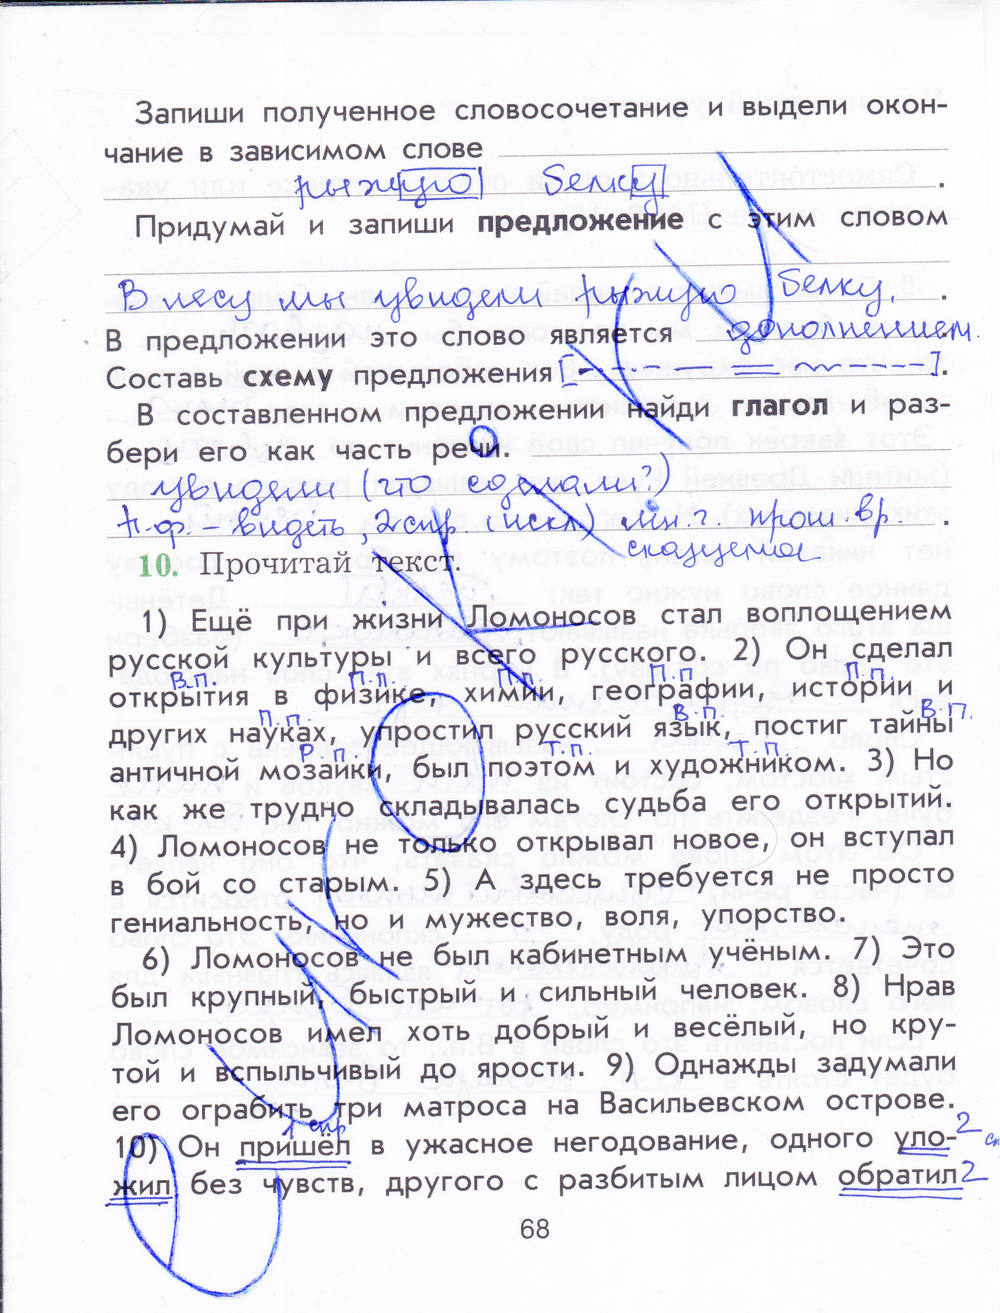 Запиши полученное словосочетание и выдели окон-
чание в зависимом слове
рыжую белку .
Придумай и запиши предложение с этим словом
В лесу мы увидели рыжую белку. .
В предложении это слово является дополнением.
Составь схему предложения [ ].
В составленном предложении найди глагол и раз-
бери его как часть речи.
увидели (что сделали?)
н.ф. - видеть, 2 спр. (искл) мн.ч. прош. вр. .
сказуемое
10. Прочитай текст.
1) Ещё при жизни Ломоносов стал воплощением
русской культуры и всего русского. 2) Он сделал
В.п. П.п. П.п. П.п. П.п.
открытия в физике, химии, географии, истории и
П.п. В.п. В.п.
других науках, упростил русский язык, постиг тайны
Р.п. Т.п. Т.п.
античной мозаики, был поэтом и художником. 3) Но
как же трудно складывалась судьба его открытий.
4) Ломоносов не только открывал новое, он вступал
в бой со старым. 5) А здесь требуется не просто
гениальность, но и мужество, воля, упорство.
6) Ломоносов не был кабинетным учёным. 7) Это
был крупный, быстрый и сильный человек. 8) Нрав
Ломоносов имел хоть добрый и весёлый, но кру-
той и вспыльчивый до ярости. 9) Однажды задумали
его ограбить три матроса на Васильевском острове.
1 спр 2 сп
10) Он пришёл в ужасное негодование, одного уло-
жил без чувств, другого с разбитым лицом обратил 2
68